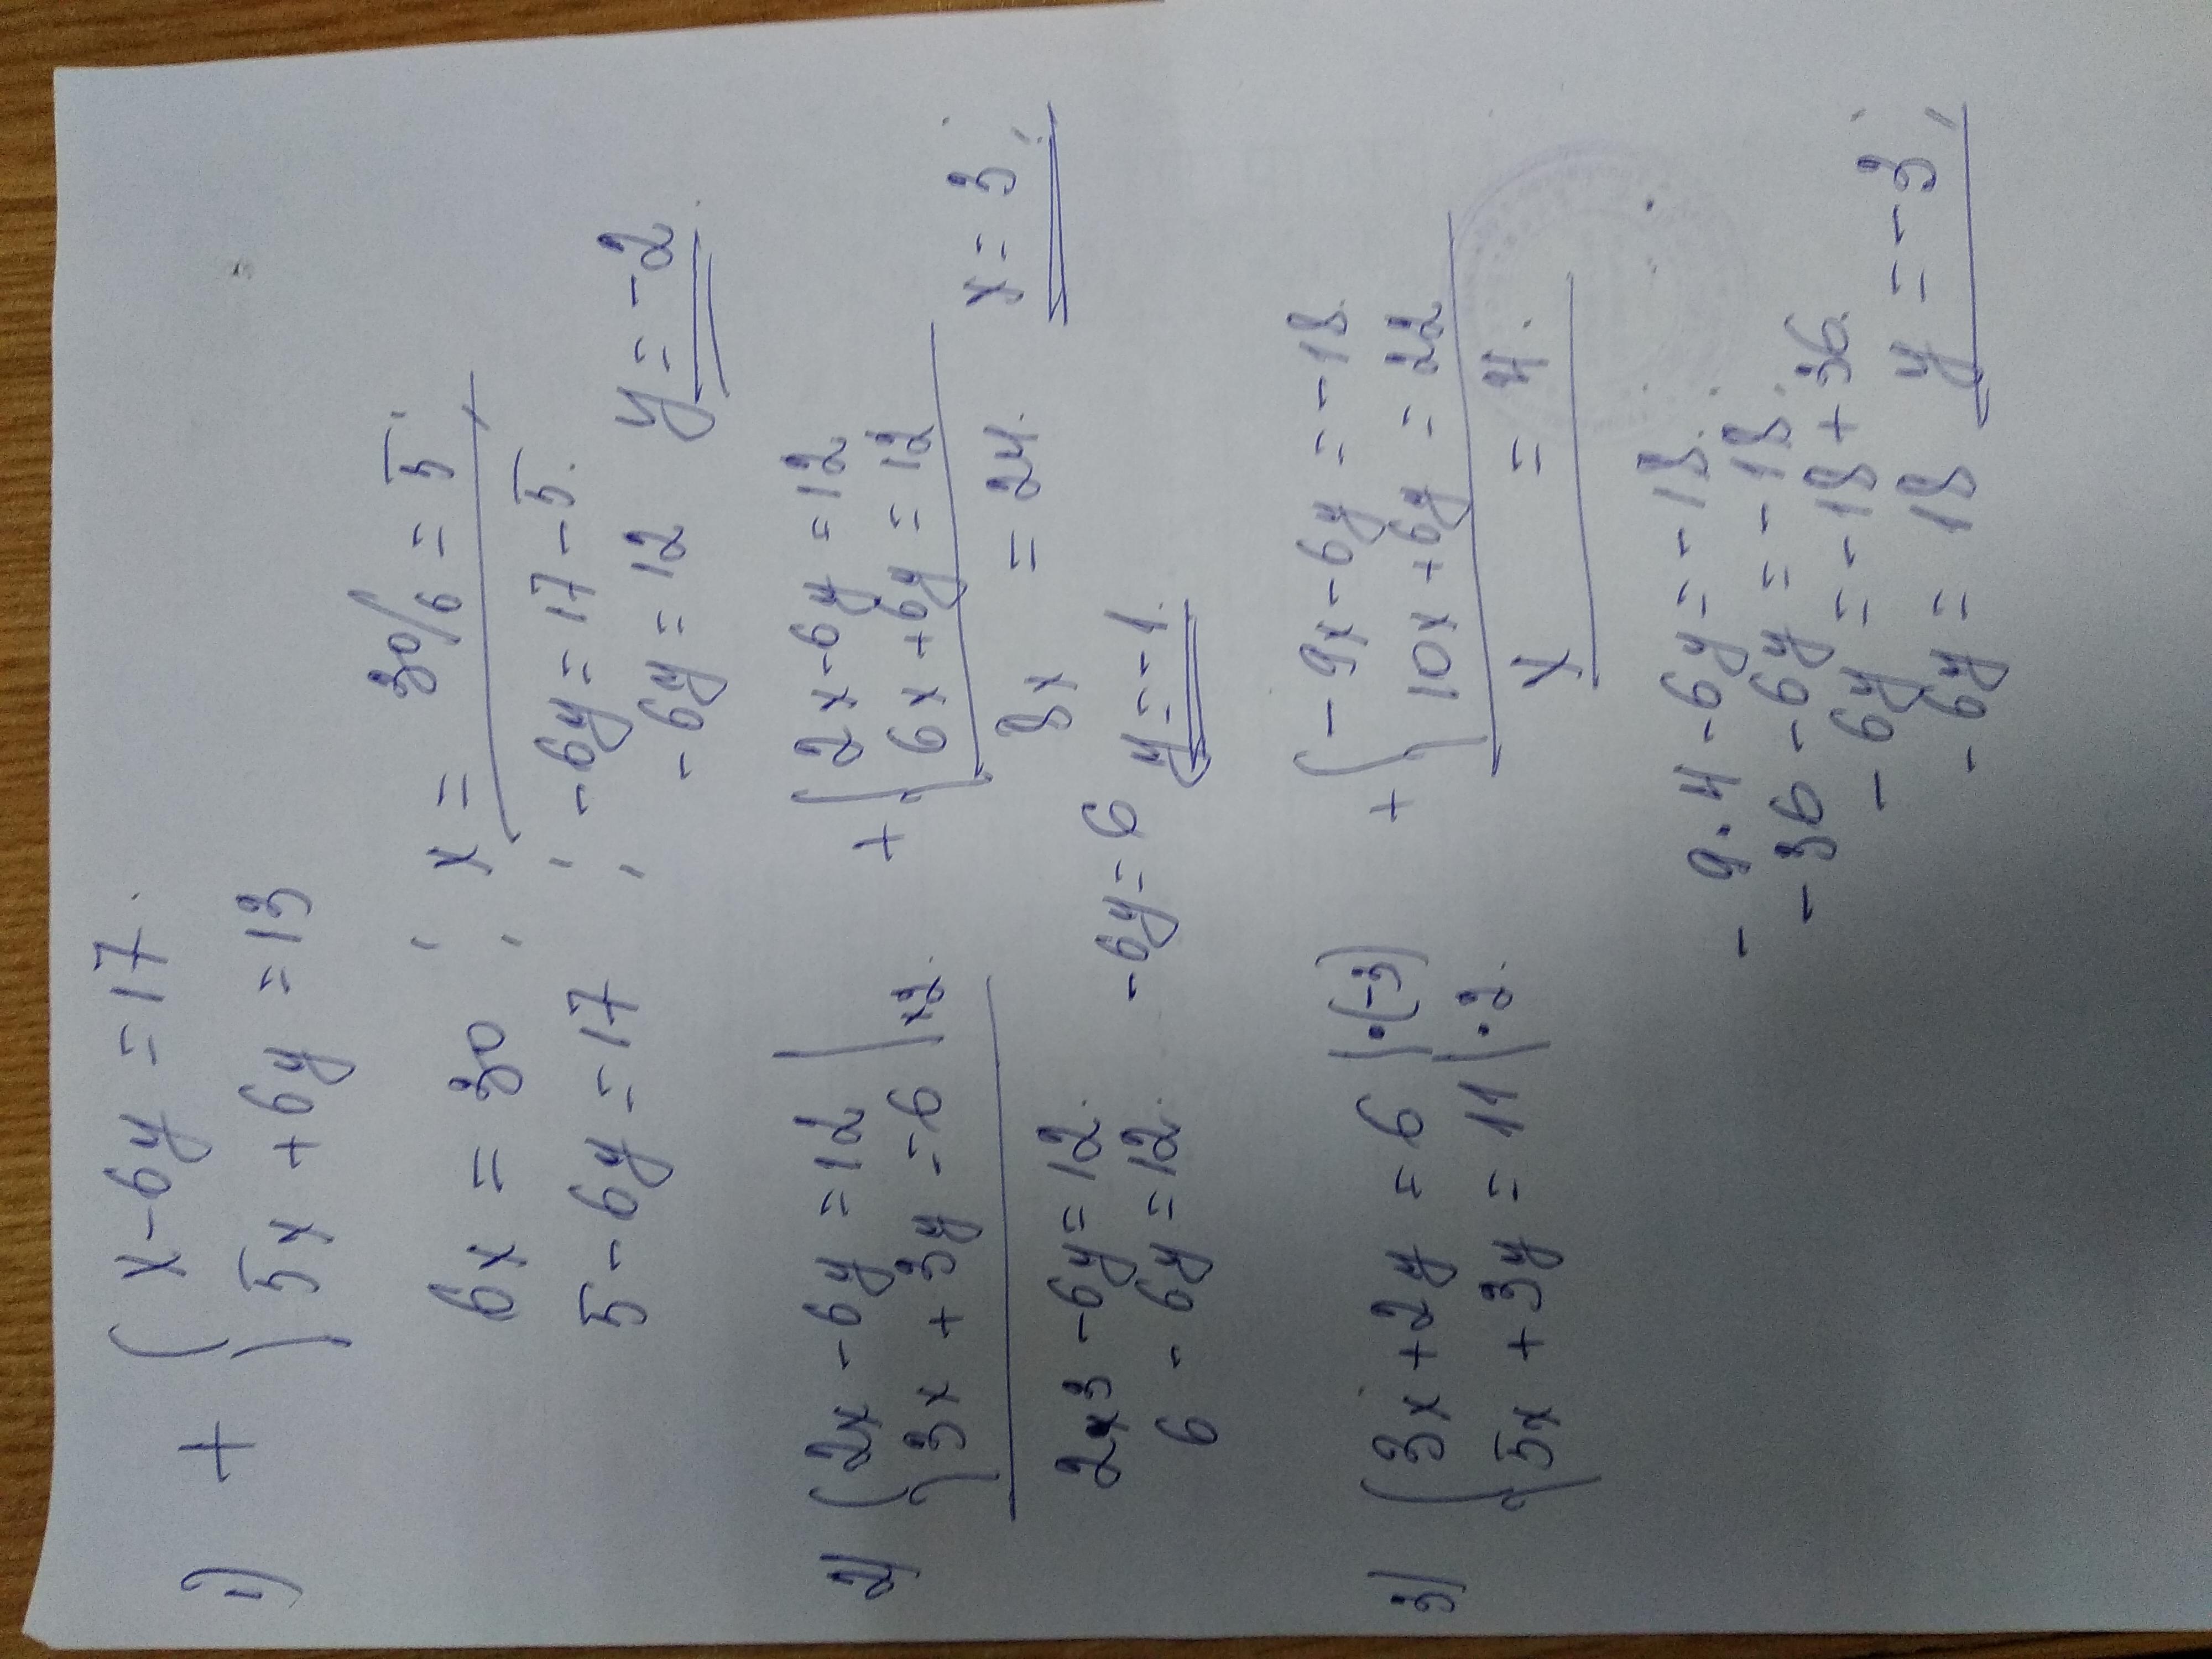 1) + { x - 6y = 17.
5x + 6y = 13
6x = 30 ; x = 30/6 = 5.
5 - 6y = 17 ; -6y = 17 - 5.
-6y = 12 y = -2
2) { 2x - 6y = 12
3x + 3y = 6 | x2.
+ { 2x - 6y = 12
6x + 6y = 12
8x = 24. x = 3
2x3 - 6y = 12.
6 - 6y = 12.
-6y = 6 y = -1.
3) { 3x + 2y = 6 | ·(-3)
5x + 3y = 11 | ·2.
+ { -9x - 6y = -18
10x + 6y = 22
x = 4.
-9·4 - 6y = -18.
-36 - 6y = -18.
-6y = -18 + 36.
-6y = 18 y = -3